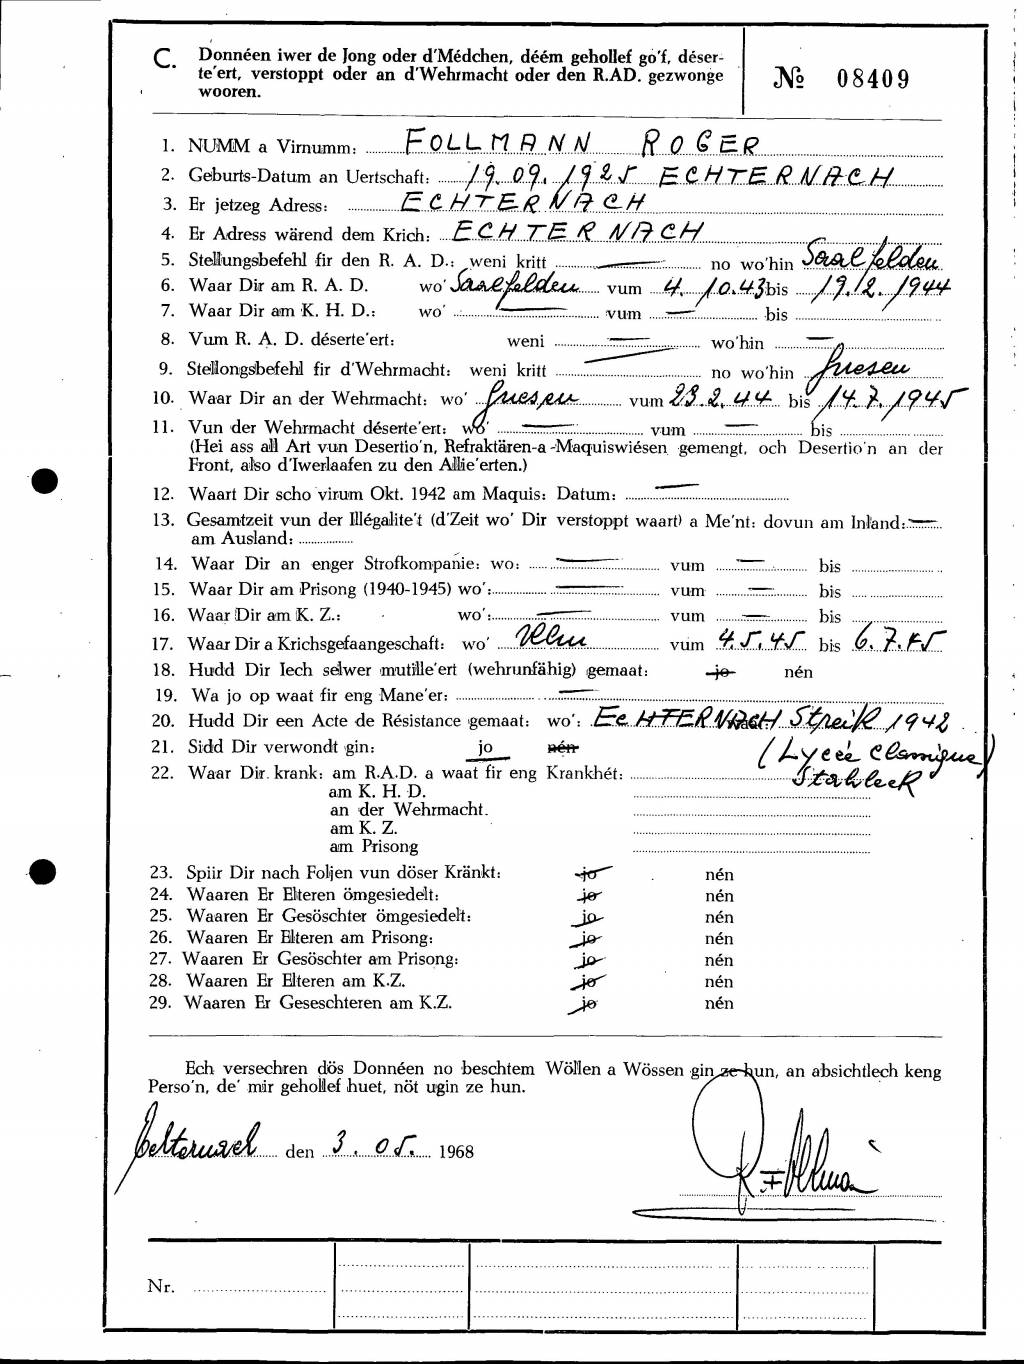 C. Donnéen iwer de Jong oder d'Médchen, déém gehollef go'f, déser-
te'ert, verstoppt oder an d'Wehrmacht oder den R.AD. gezwonge
wooren.
№ 08409
1. NUMM a Virnumm: FOLLMANN ROGER
2. Geburts-Datum an Uertschaft: 19.09.1925 ECHTERNACH
3. Er jetzeg Adress: ECHTERNACH
4. Er Adress wärend dem Krich: ECHTERNACH
5. Stellungsbefehl fir den R. A. D.: weni kritt — no wo'hin Saalfelden
6. Waar Dir am R. A. D. wo' Saalfelden vum 4. 10.43 bis 19.12.1944
7. Waar Dir am K. H. D.: wo' — vum — bis
8. Vum R. A. D. déserte'ert: weni — wo'hin —
9. Stellongsbefehl fir d'Wehrmacht: weni kritt — no wo'hin Griesen
10. Waar Dir an der Wehrmacht: wo' Griesen vum 23.2.44 bis 14.7.1945
11. Vun der Wehrmacht déserte'ert: wo' — vum — bis
(Hei ass all Art vun Desertio'n, Refraktären-a-Maquiswiésen gemengt, och Desertio'n an der
Front, also d'Iwerlaafen zu den Allie'erten.)
12. Waart Dir scho virum Okt. 1942 am Maquis: Datum: —
13. Gesamtzeit vun der Illégalite't (d'Zeit wo' Dir verstoppt waart) a Me'nt: dovun am Inland: —
am Ausland:
14. Waar Dir an enger Strofkompanie: wo: — vum — bis
15. Waar Dir am Prisong (1940-1945) wo': — vum — bis
16. Waar Dir am K. Z.: wo': — vum — bis
17. Waar Dir a Krichsgefaangeschaft: wo' Ulm vum 4.5.45 bis 6.7.45
18. Hudd Dir Iech selwer mutille'ert (wehrunfähig) gemaat: jo nén
19. Wa jo op waat fir eng Mane'er: —
20. Hudd Dir een Acte de Résistance gemaat: wo': ECHTERNACH Streik 1942
21. Sidd Dir verwondt gin: jo nén (Lycée Classique)
22. Waar Dir krank: am R.A.D. a waat fir eng Krankhét: Stahleck
am K. H. D.
an der Wehrmacht.
am K. Z.
am Prisong
23. Spiir Dir nach Foljen vun döser Kränkt: jo nén
24. Waaren Er Elteren ömgesiedelt: jo nén
25. Waaren Er Gesöschter ömgesiedelt: jo nén
26. Waaren Er Elteren am Prisong: jo nén
27. Waaren Er Gesöschter am Prisong: jo nén
28. Waaren Er Elteren am K.Z. jo nén
29. Waaren Er Geseschteren am K.Z. jo nén
Ech versechren dös Donnéen no beschtem Wöllen a Wössen gin ze hun, an absichtlech keng
Perso'n, de' mir gehollef huet, nöt ugin ze hun.
den 3.05. 1968
Nr.